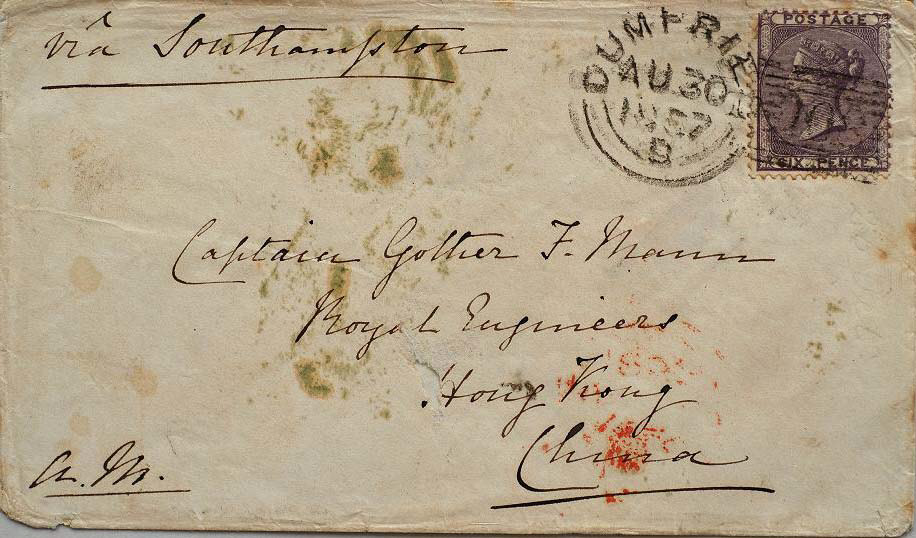 via Southampton
DUMFRIE
AU 30
1857
B
POSTAGE
SIX PENCE
Captain Gother F. Mann
Royal Engineers
Hong Kong
China
a. M.